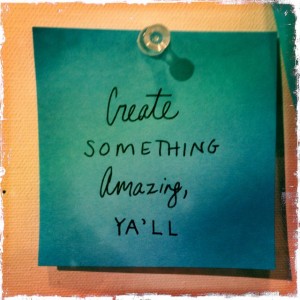 Create
SOMETHING
Amazing,
YA'LL